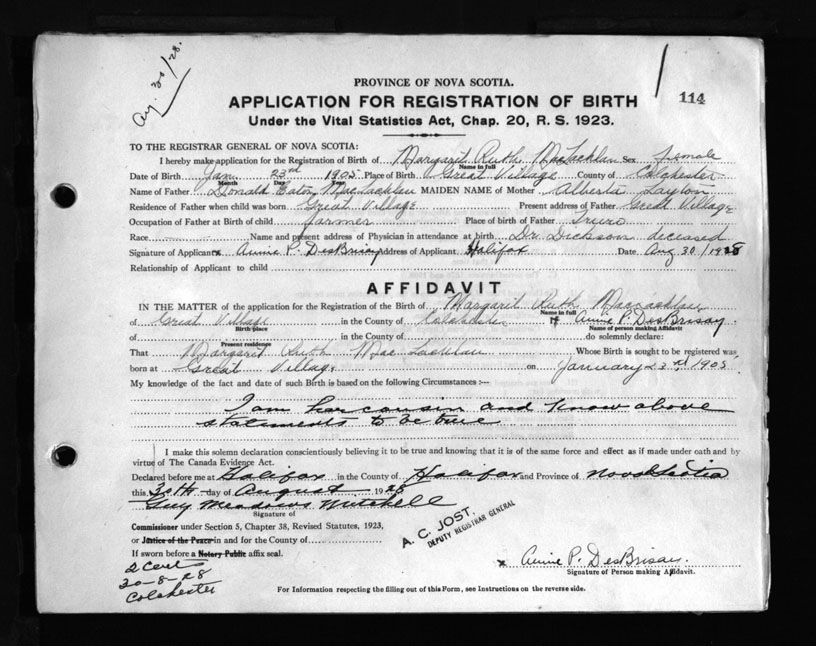 Aug. 30/28.
114
PROVINCE OF NOVA SCOTIA.
APPLICATION FOR REGISTRATION OF BIRTH
Under the Vital Statistics Act, Chap. 20, R. S. 1923.
TO THE REGISTRAR GENERAL OF NOVA SCOTIA:
I hereby make application for the Registration of Birth of Margaret Ruth MacLachlan Sex female
Name in full
Date of Birth Jan. 23rd 1905 Place of Birth Great Village County of Colchester
Month Day Year
Name of Father Donald Eaton MacLachlan MAIDEN NAME of Mother Alberta Layton
Residence of Father when child was born Great Village Present address of Father Great Village
Occupation of Father at Birth of child farmer Place of birth of Father Truro
Race Name and present address of Physician in attendance at birth Dr. Dickson deceased
Signature of Applicant x Annie P. DesBrisay Address of Applicant Halifax Date Aug 30/1928
Relationship of Applicant to child
AFFIDAVIT
IN THE MATTER of the application for the Registration of the Birth of Margaret Ruth MacLachlan
Name in full
of Great Village in the County of Colchester I Annie P. DesBrisay
Birth place Name of person making Affidavit
of in the County of do solemnly declare:
Present residence
That Margaret Ruth MacLachlan Whose Birth is sought to be registered was
born at Great Village on January 23rd 1905.
My knowledge of the fact and date of such Birth is based on the following Circumstances :—
I am her cousin and know above
statements to be true
I make this solemn declaration conscientiously believing it to be true and knowing that it is of the same force and effect as if made under oath and by
virtue of The Canada Evidence Act.
Declared before me at Halifax in the County of Halifax and Province of Nova Scotia
this 30th day of August 1928
Guy Meadows Mitchell
Signature of
Commissioner under Section 5, Chapter 38, Revised Statutes, 1923,
or Justice of the Peace in and for the County of
If sworn before a Notary Public affix seal.
A. C. JOST.
DEPUTY REGISTRAR GENERAL
x Annie P. DesBrisay.
Signature of Person making Affidavit.
2 Cert
30-8-28
Colchester
For Information respecting the filling out of this Form, see Instructions on the reverse side.